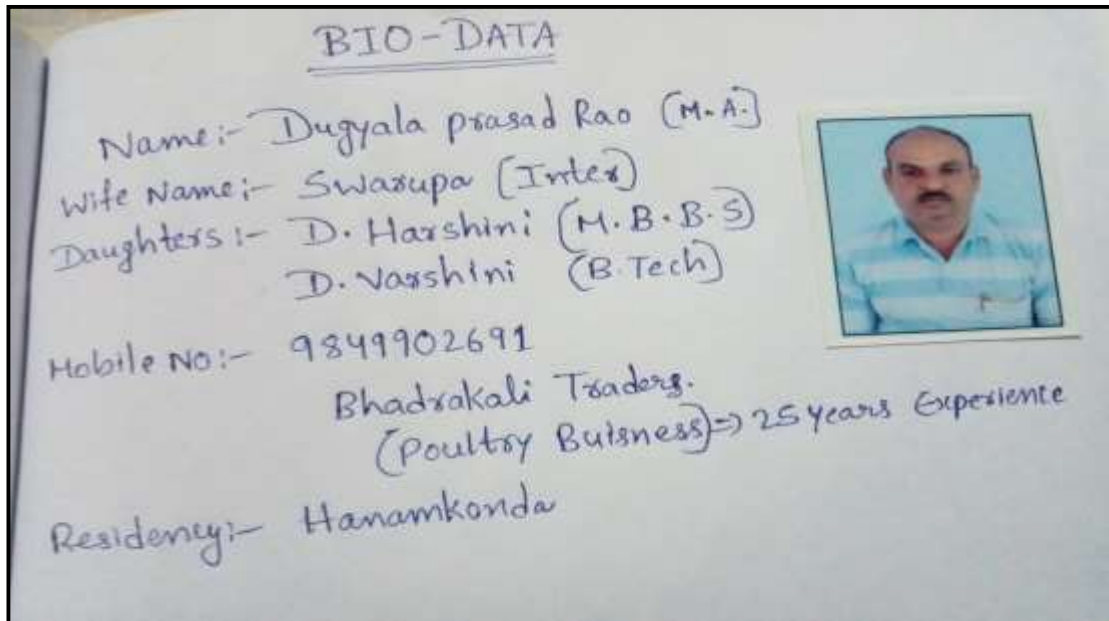 BIO-DATA
Name:- Dugyala prasad Rao (M.A.)
Wife Name:- Swarupa (Inter)
Daughters:- D. Harshini (M.B.B.S)
D. Varshini (B.Tech)
Mobile No:- 9849902691
Bhadrakali Traders.
(Poultry Buisness)=> 25 years Experience
Residency:- Hanamkonda